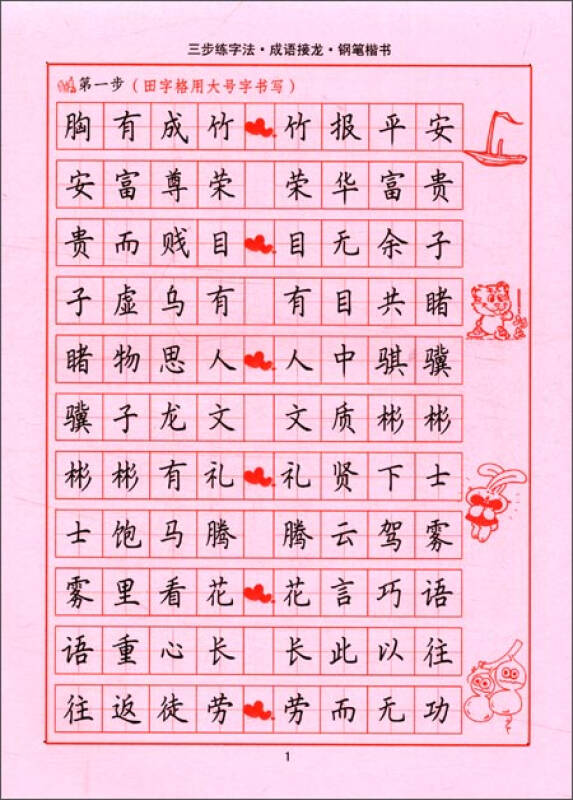 三步练字法·成语接龙·钢笔楷书
第一步（田字格用大号字书写）
胸有成竹 竹报平安
安富尊荣 荣华富贵
贵而贱目 目无余子
子虚乌有 有目共睹
睹物思人 人中骐骥
骥子龙文 文质彬彬
彬彬有礼 礼贤下士
士饱马腾 腾云驾雾
雾里看花 花言巧语
语重心长 长此以往
往返徒劳 劳而无功
1